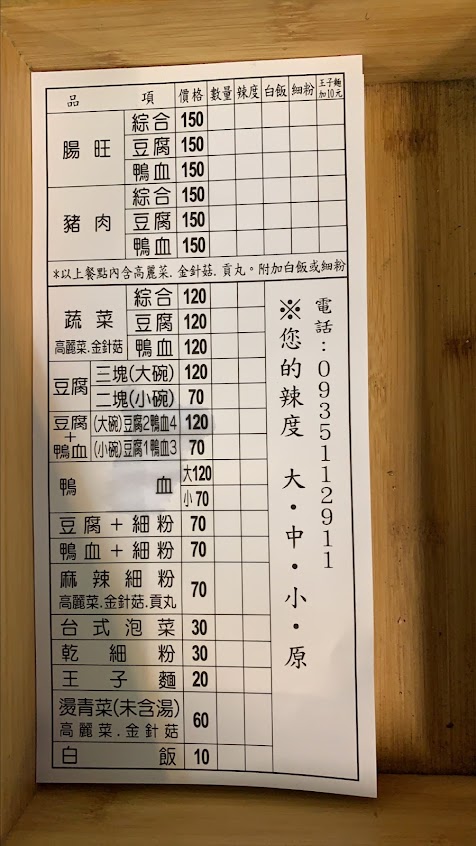 品 項 價格 數量 辣度 白飯 細粉 王子麵加10元
腸旺 綜合 150
豆腐 150
鴨血 150
豬肉 綜合 150
豆腐 150
鴨血 150
*以上餐點內含高麗菜.金針菇.貢丸。附加白飯或細粉
蔬菜 綜合 120
豆腐 120
高麗菜.金針菇 鴨血 120
豆腐 三塊(大碗) 120
二塊(小碗) 70
豆腐+鴨血 (大碗)豆腐2鴨血4 120
(小碗)豆腐1鴨血3 70
鴨血 大120
小70
豆腐+細粉 70
鴨血+細粉 70
麻辣細粉 70
高麗菜.金針菇.貢丸
台式泡菜 30
乾細粉 30
王子麵 20
燙青菜(未含湯) 60
高麗菜.金針菇
白飯 10
電話:0935112911
※您的辣度 大・中・小・原